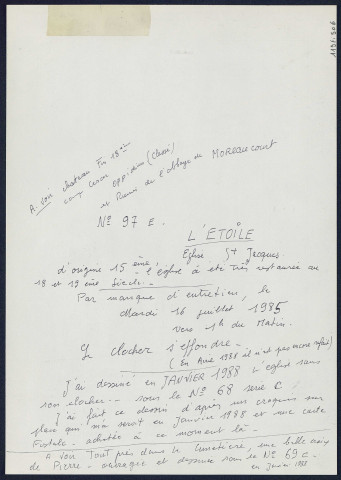 A voir château Fin 18 ème
camp César OPPidum (Classé)
et Ruines de l'abbaye de MOREAUCOURT
No 97 E.
L'ETOILE
Eglise St Jacques
d'origine 15 ème, - l'église à été très restaurée au
18 et 19 ème siècle -
Par manque d'entretien, le
Mardi 16 juillet 1985
vers 1h du Matin.
Le clocher s'effondre -
(En Avril 1988 il n'est pas encore refait)
J'ai dessiné en JANVIER 1988 l'église sans
son clocher -- sous le No 68 serie C,
J'ai fait ce dessin d'après un croquis sur
place qui m'a servi en Janvier 1988 et une carte
Postale - achetée à ce moment là -
a voir Tout près dans le cimetière, une belle croix
de Pierre - ouvragée et dessinée sous le No 69 C -
en Janvier 1988